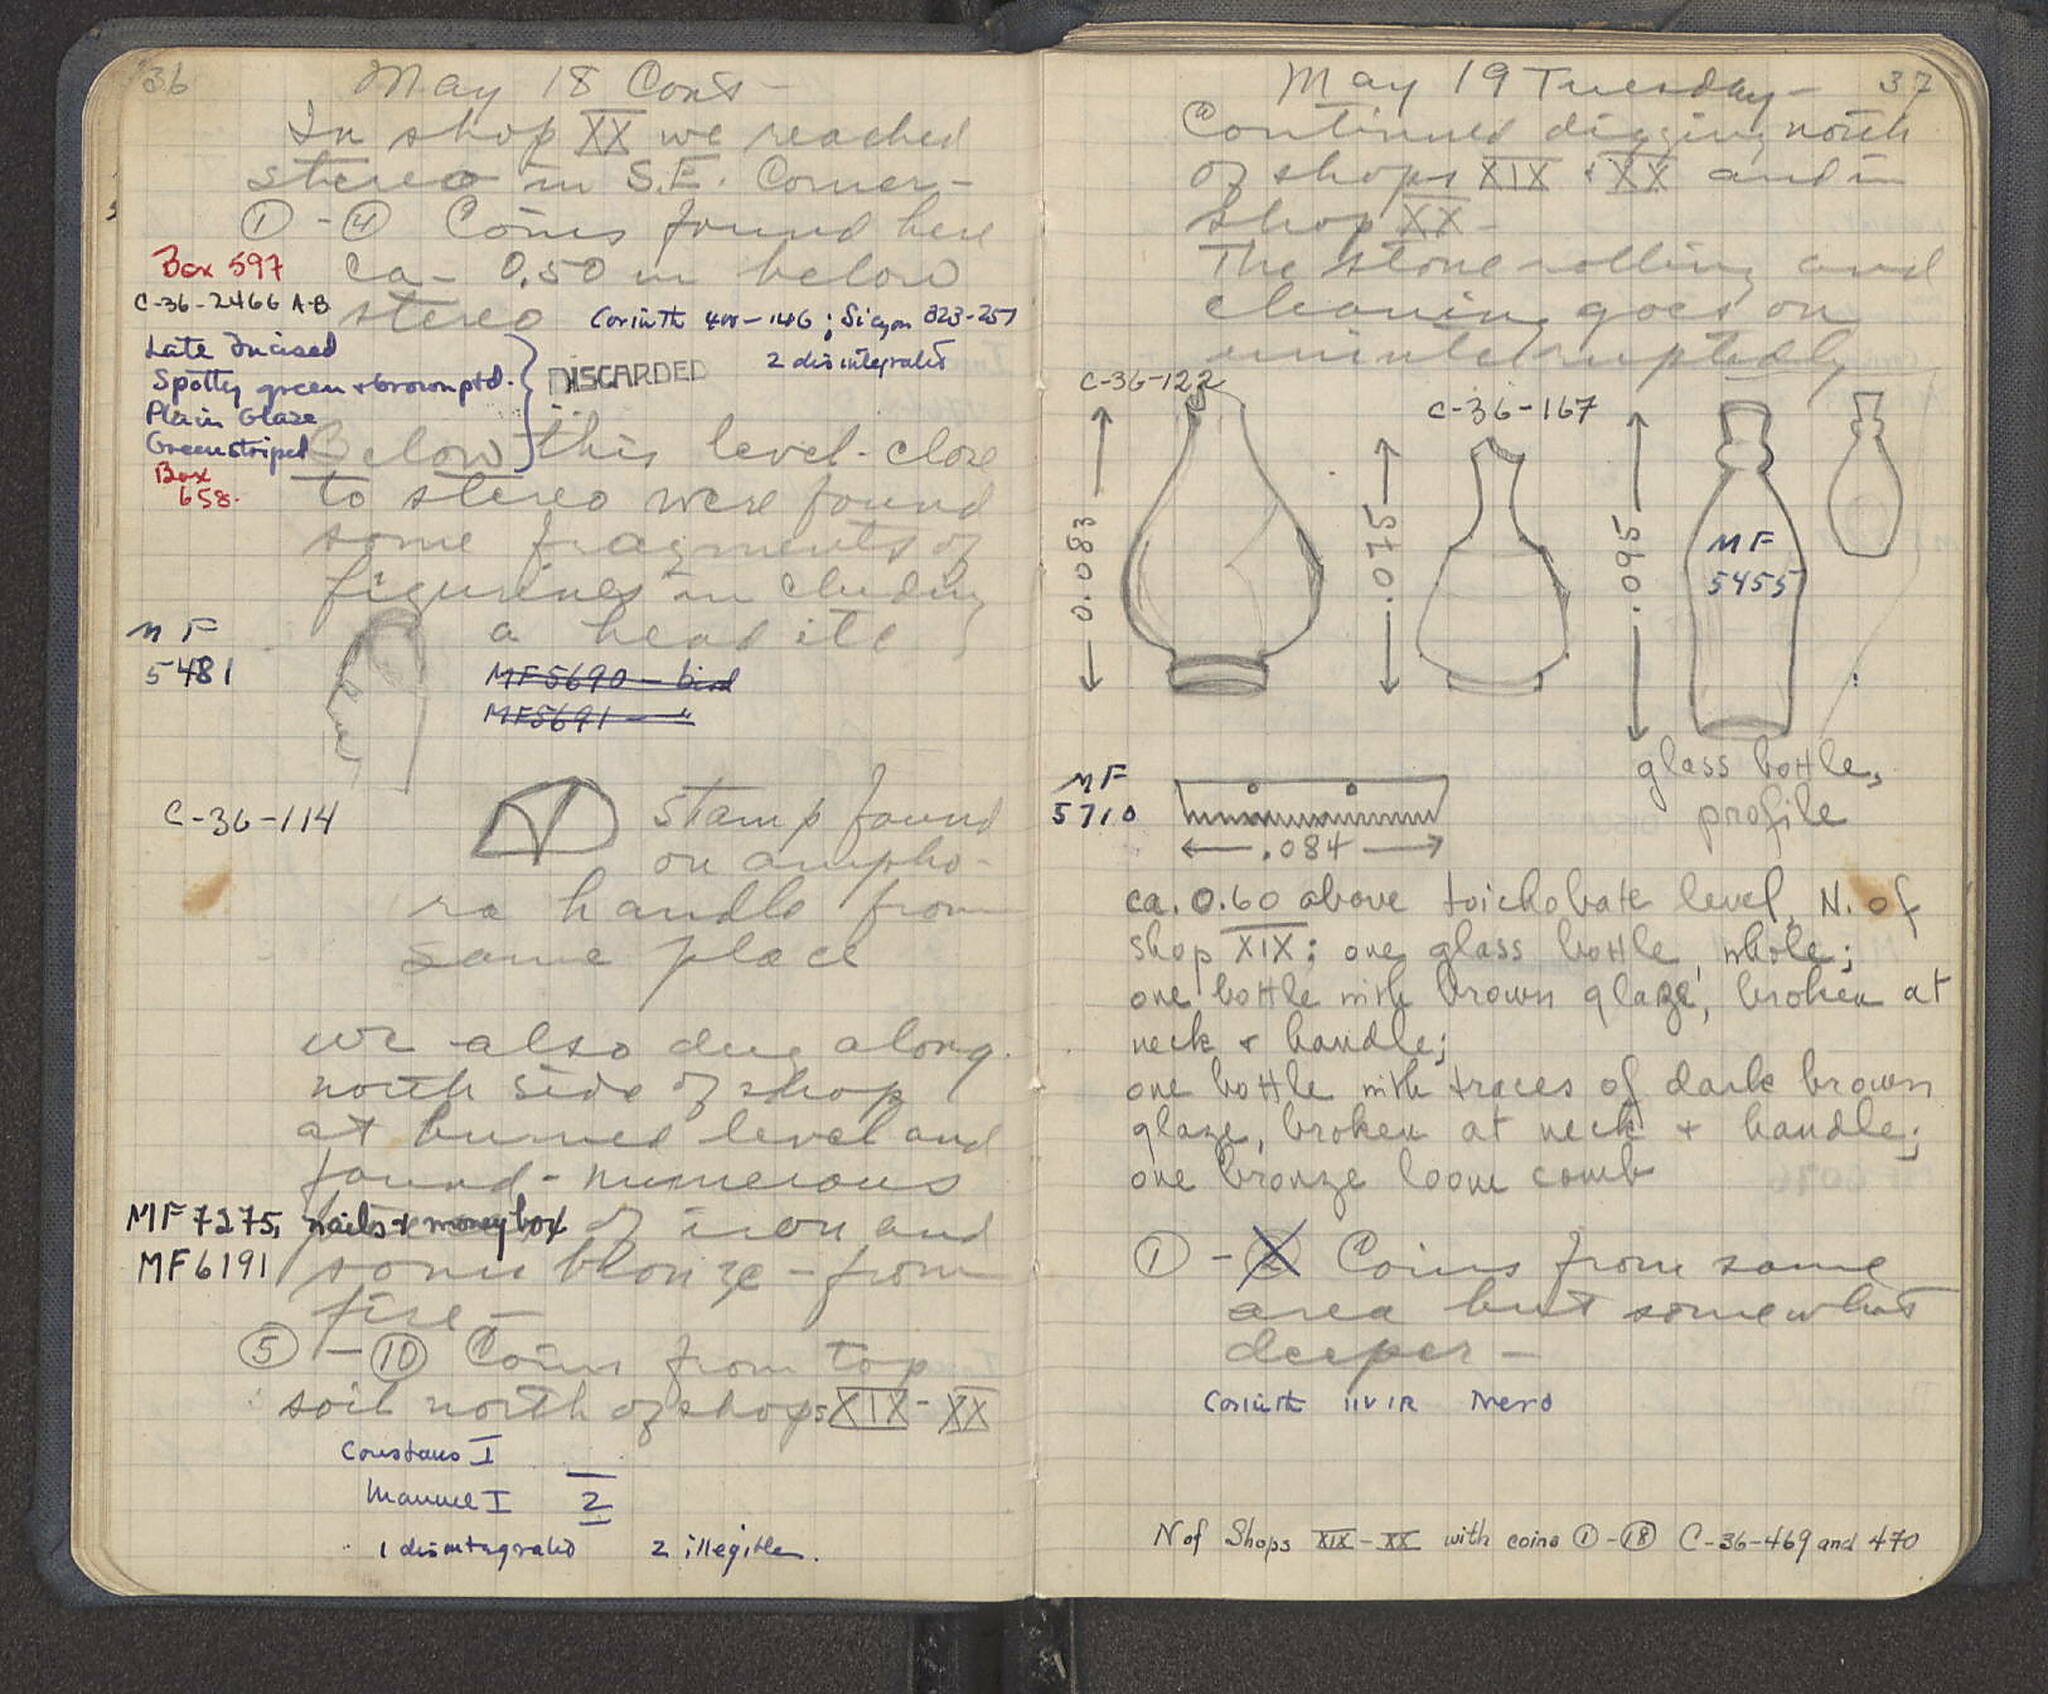 36
May 18 Cont-
In shop XX we reached
stereo in S.E. Corner-
① - ④ Coins found here
Box 597
ca- 0.50 m below
C-36-2466 A-B
stereo
Corinth 400-146; Sicyon 323-251
2 disintegrated
Late Incised
Spotty green + brown ptd.
Plain Glaze
Green striped
DISCARDED
Box
658.
Below this level-close
to stereo were found
some fragments of
figurines including
a head
MF
5481
MF5690 - bird
MF5691 - "
C-36-114
stamp found
on ampho-
ra handle from
same place
we also dug along
north side of shop
at burned level and
found - numerous
MF7275, nails + money box
of iron and
MF6191
some bronze - from
fire -
⑤ - ⑩ Coins from top
soil north of shops XIX - XX
Constans I
Manuel I 2
1 disintegrated 2 illegible.
37
May 19 Tuesday-
Continued digging north
of shops XIX + XX and in
shop XX-
The stone rolling and
cleaning goes on
uninterruptedly
C-36-122
C-36-167
0.083
.075
.095
MF
5455
glass bottle,
profile
MF
5710
.084
ca. 0.60 above toichobate level, N. of
shop XIX: one glass bottle, whole;
one bottle with brown glaze, broken at
neck + handle;
one bottle with traces of dark brown
glaze, broken at neck + handle;
one bronze loom comb
① - ② Coins from same
area but somewhat
deeper-
Corinth IIVIR Nero
N of Shops XIX-XX with coins ①-⑱ C-36-469 and 470